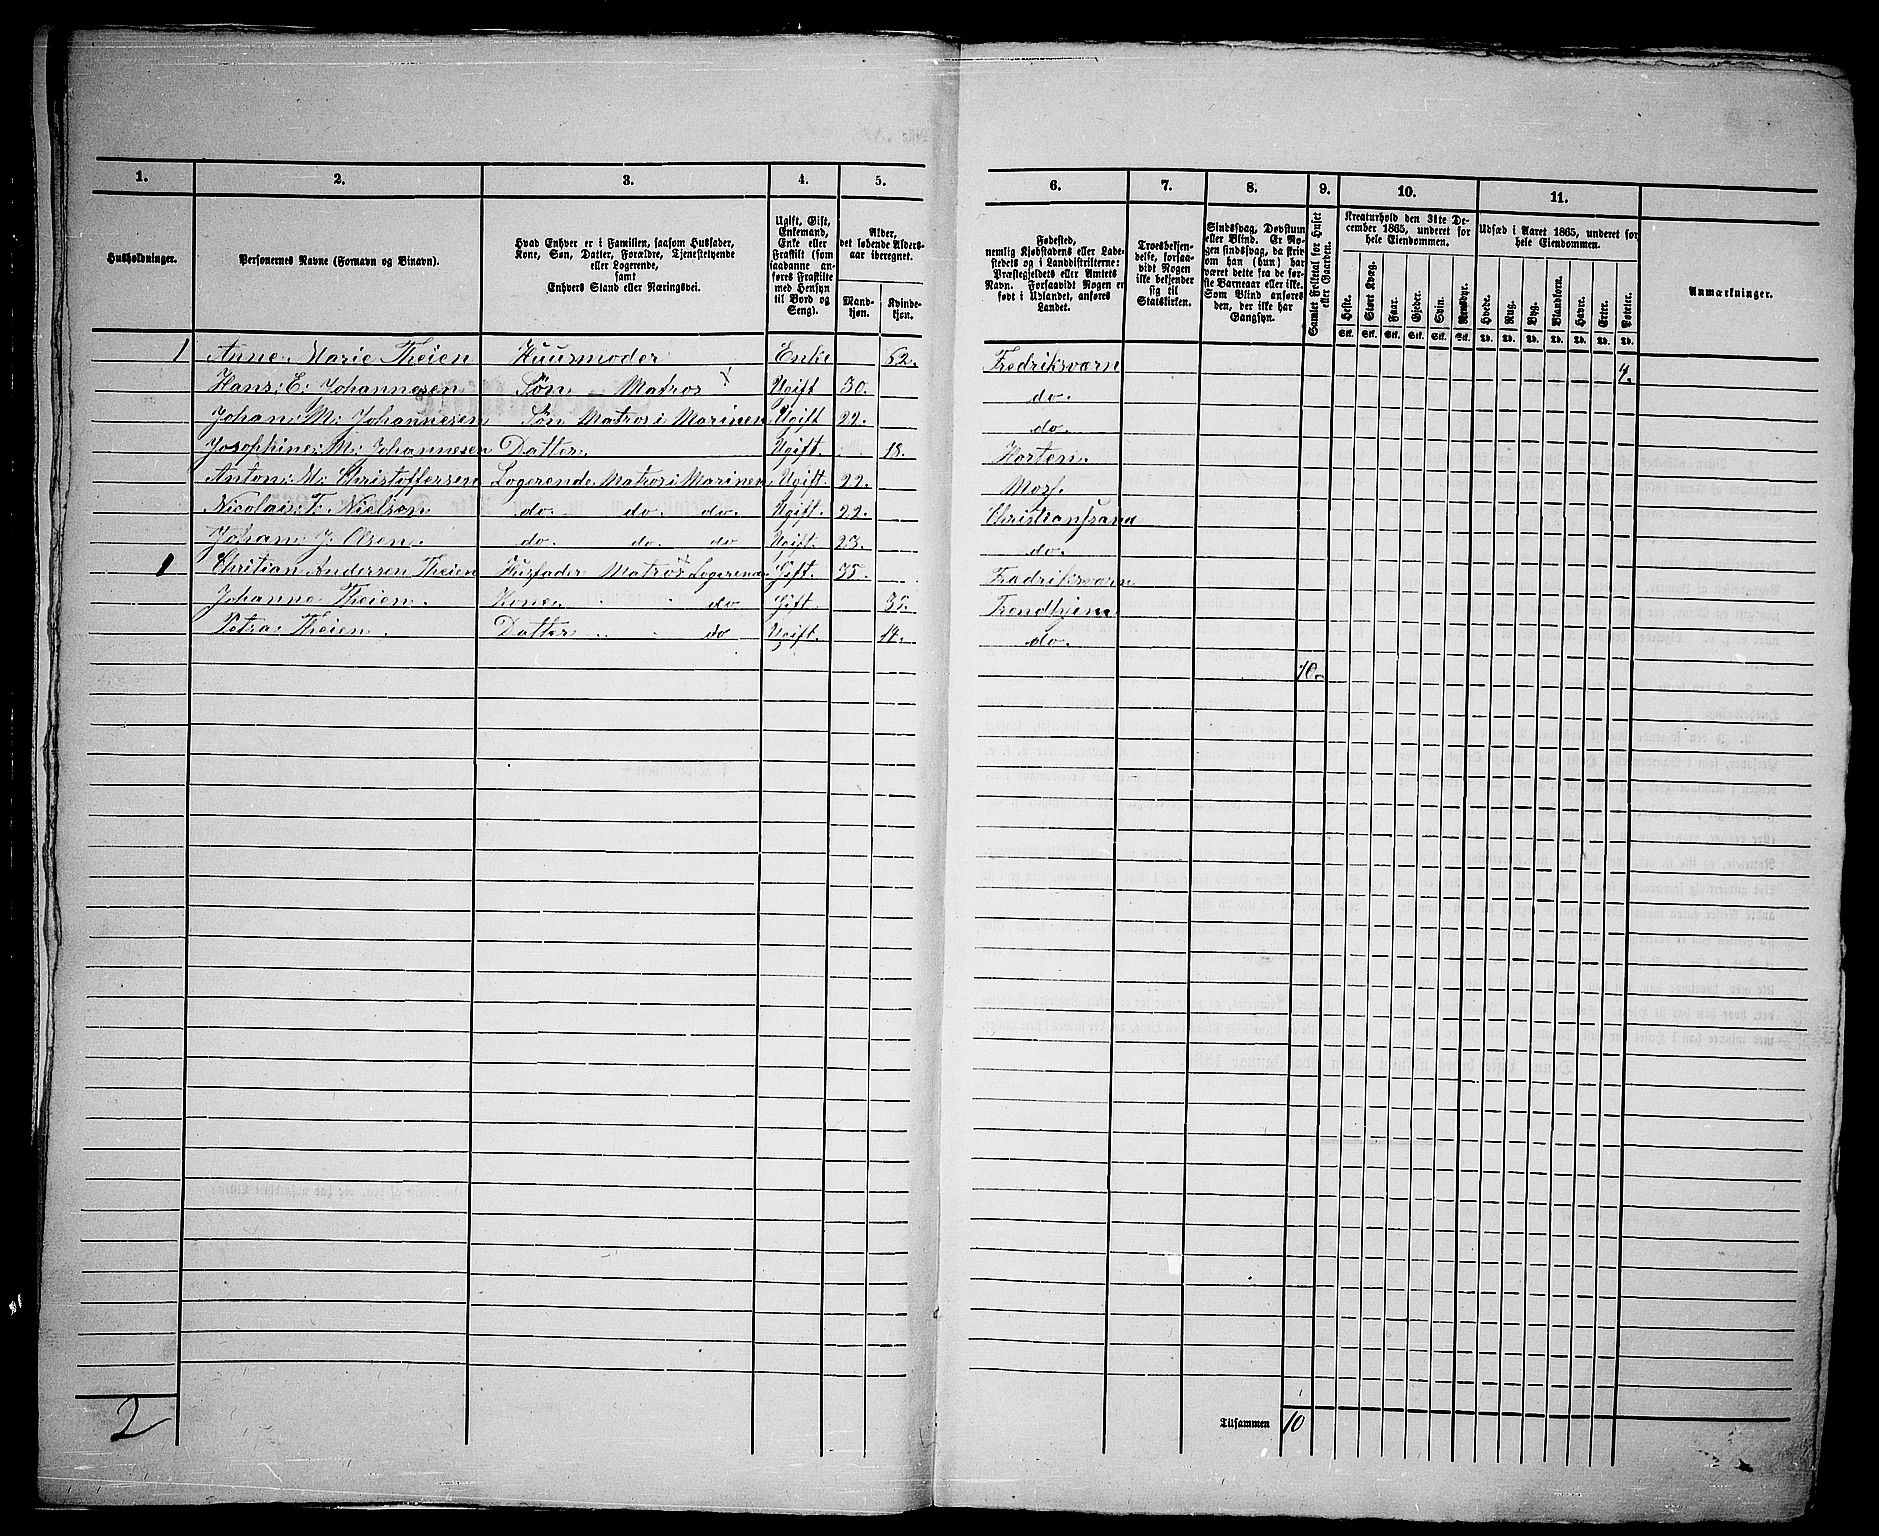 1. 2. 3. 4. 5. 6. 7. 8. 9. 10. 11.
Husholdninger.
Personernes Navne (Fornavn og Binavn).
Hvad Enhver er i Familien, saasom Husfader,
Kone, Søn, Datter, Forældre, Tjenestetyende
eller Logerende,
samt
Enhvers Stand eller Næringsvei.
Ugift, Gift,
Enkemand,
Enke eller
Fraskilt (som
saadanne an-
føres Fraskilte
med Hensyn
til Bord og
Seng).
Alder,
det løbende Alders-
aar iberegnet.
Mand-
kjøn.
Kvinde-
kjøn.
Fødested,
nemlig Kjøbstadens eller Lade-
stedets og i Landdistrikterne:
Præstegjeldets eller Amtets
Navn. Forsaavidt Nogen er
født i Udlandet, anføres
Landet.
Troesbekjen-
delse, forsaa-
vidt Nogen
ikke bekjender
sig til
Statskirken.
Sindssvag, Døvstum
eller Blind. Er No-
gen sindssvag, da skriv
om han (hun) har
været dette fra de før-
ste Barneaar eller ikke.
Som Blind anføres
den, der ikke har
Gangsyn.
Samlet Folketal for Huset
eller Gaarden.
Kreaturhold den 31te De-
cember 1865, underet for
hele Eiendommen.
Heste. Stort Kvæg. Faar. Gjeder. Sviin. Rensdyr.
Stk. Stk. Stk. Stk. Stk. Stk.
Udsæd i Aaret 1865, underet for
hele Eiendommen.
Hvede. Rug. Byg. Blandkorn. Havre. Erter. Poteter.
Td. Td. Td. Td. Td. Td. Td.
Anmærkninger.
1 Anne Marie Theien Huusmoder Enke 52. Fredriksværn
Hans E. Johannesen Søn Matros Ugift 30. do.
Johan M. Johannesen Søn Matros i Marinen Ugift 22. do.
Josephine M. Johannesen Datter Ugift 18. Horten.
Anton M. Christoffersen Logerende Matros i Marinen Ugift. 22. Mos.
Nicolai F. Nielson do do do Ugift. 22. Christiansand
Johan J. Olsen do do do Ugift. 23. do.
1 Chritian Andersen Theien Husfader Matros Logerende Gift. 35. Fredriksværn
Johanne Theien. Kone do Gift. 35. Trondhjem
Petra Theien. Datter do Ugift. 14. do.
10.
2
Tilsammen 10